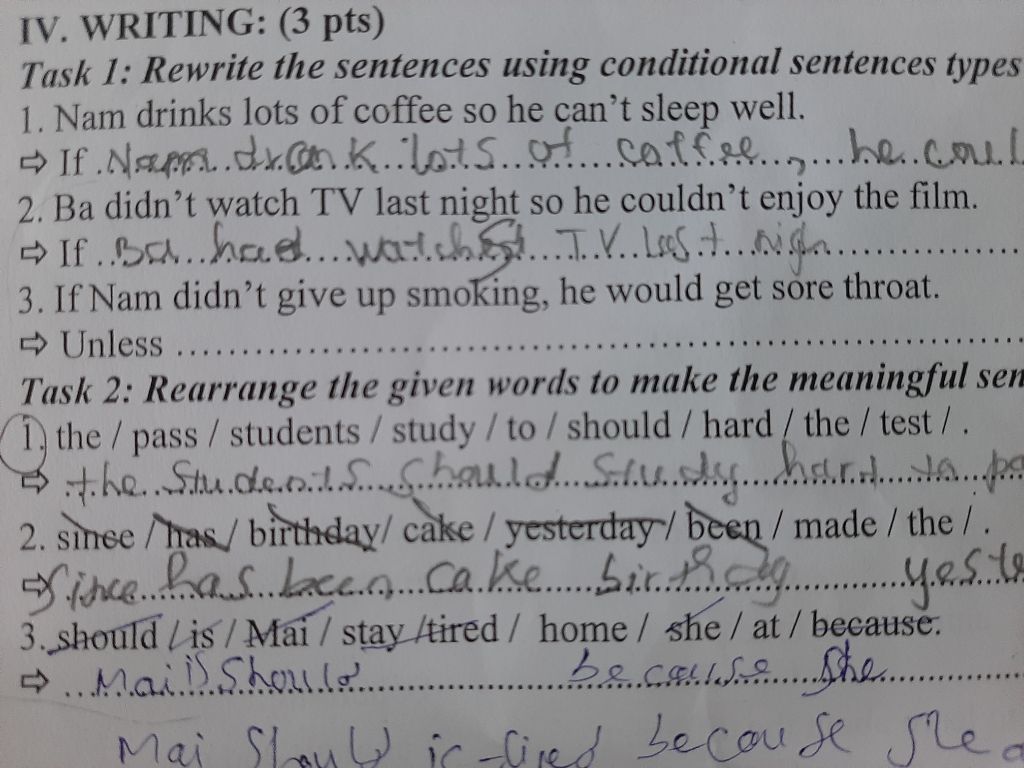 IV. WRITING: (3 pts)
Task 1: Rewrite the sentences using conditional sentences types
1. Nam drinks lots of coffee so he can't sleep well.
⇨ If Nam drank lots of coffee, he coul
2. Ba didn't watch TV last night so he couldn't enjoy the film.
⇨ If Ba had watched T.V last nigh
3. If Nam didn't give up smoking, he would get sore throat.
⇨ Unless ........................................................
Task 2: Rearrange the given words to make the meaningful sen
1. the / pass / students / study / to / should / hard / the / test / .
⇨ the students should study hard to pa
2. since / has / birthday/ cake / yesterday / been / made / the / .
⇨ Since has been cake birthday yeste
3. should / is / Mai / stay /tired / home / she / at / because.
⇨ Mai should because she
Mai should tired because she